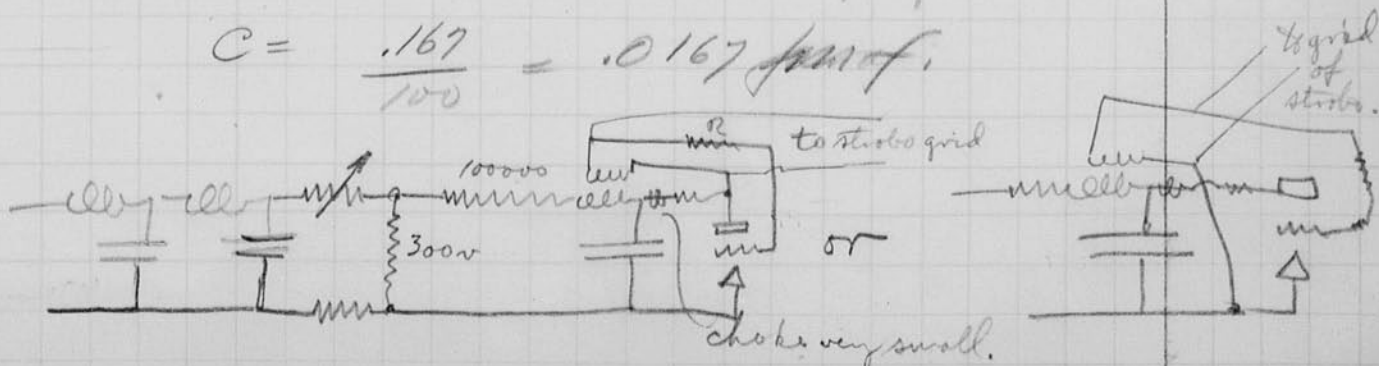 C = .167 / 100 = .0167 mf.
to grid
of
strobo.
R
to strobo grid
100000
300v
or
choke very small.